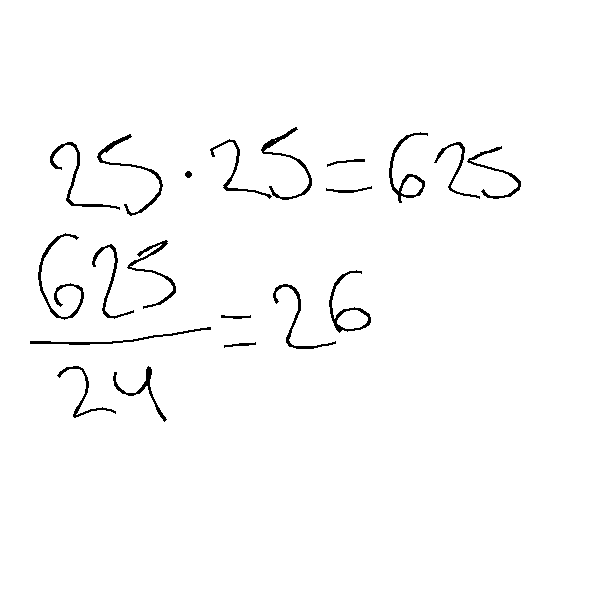 25 · 25 = 625
625/24 = 26